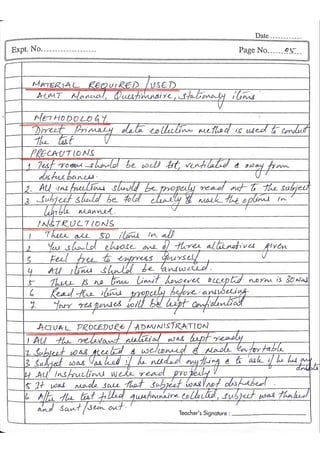 Date............
Expt. No.................... Page No. 05
MATERIAL REQUIRED/USED
ALMT Manual, Questionnaire, stationary items
METHODOLOGY
Direct Primary data collection method is used to conduct
the test
PRECAUTIONS
1 Test room should be well lit, ventilated & away from
disturbances
2. All instructions should be properly read out to the subject
3 Subject should be told clearly to mark the options in
legible manner.
INSTRUCTIONS
1 There are 50 items in all
2 You should choose one of three alternatives given
3 Feel free to express yourself
4 All items should be answered.
5 There is no time limit however accepted norm is 30 mins
6 Read the items properly before answering
7. Your responses will be kept confidential
ACTUAL PROCEDURE / ADMINISTRATION
1 All the relevant material was kept ready
2 Subject was greeted & welcomed & made comfortable
3 Subject was asked if he needed anything & to ask if he has any
doubts
4 All instructions were read properly
5 It was made sure that subject was not disturbed
6 After the test filled questionnaire collected, subject was thanked
and sent/seen out.
Teacher's Signature :